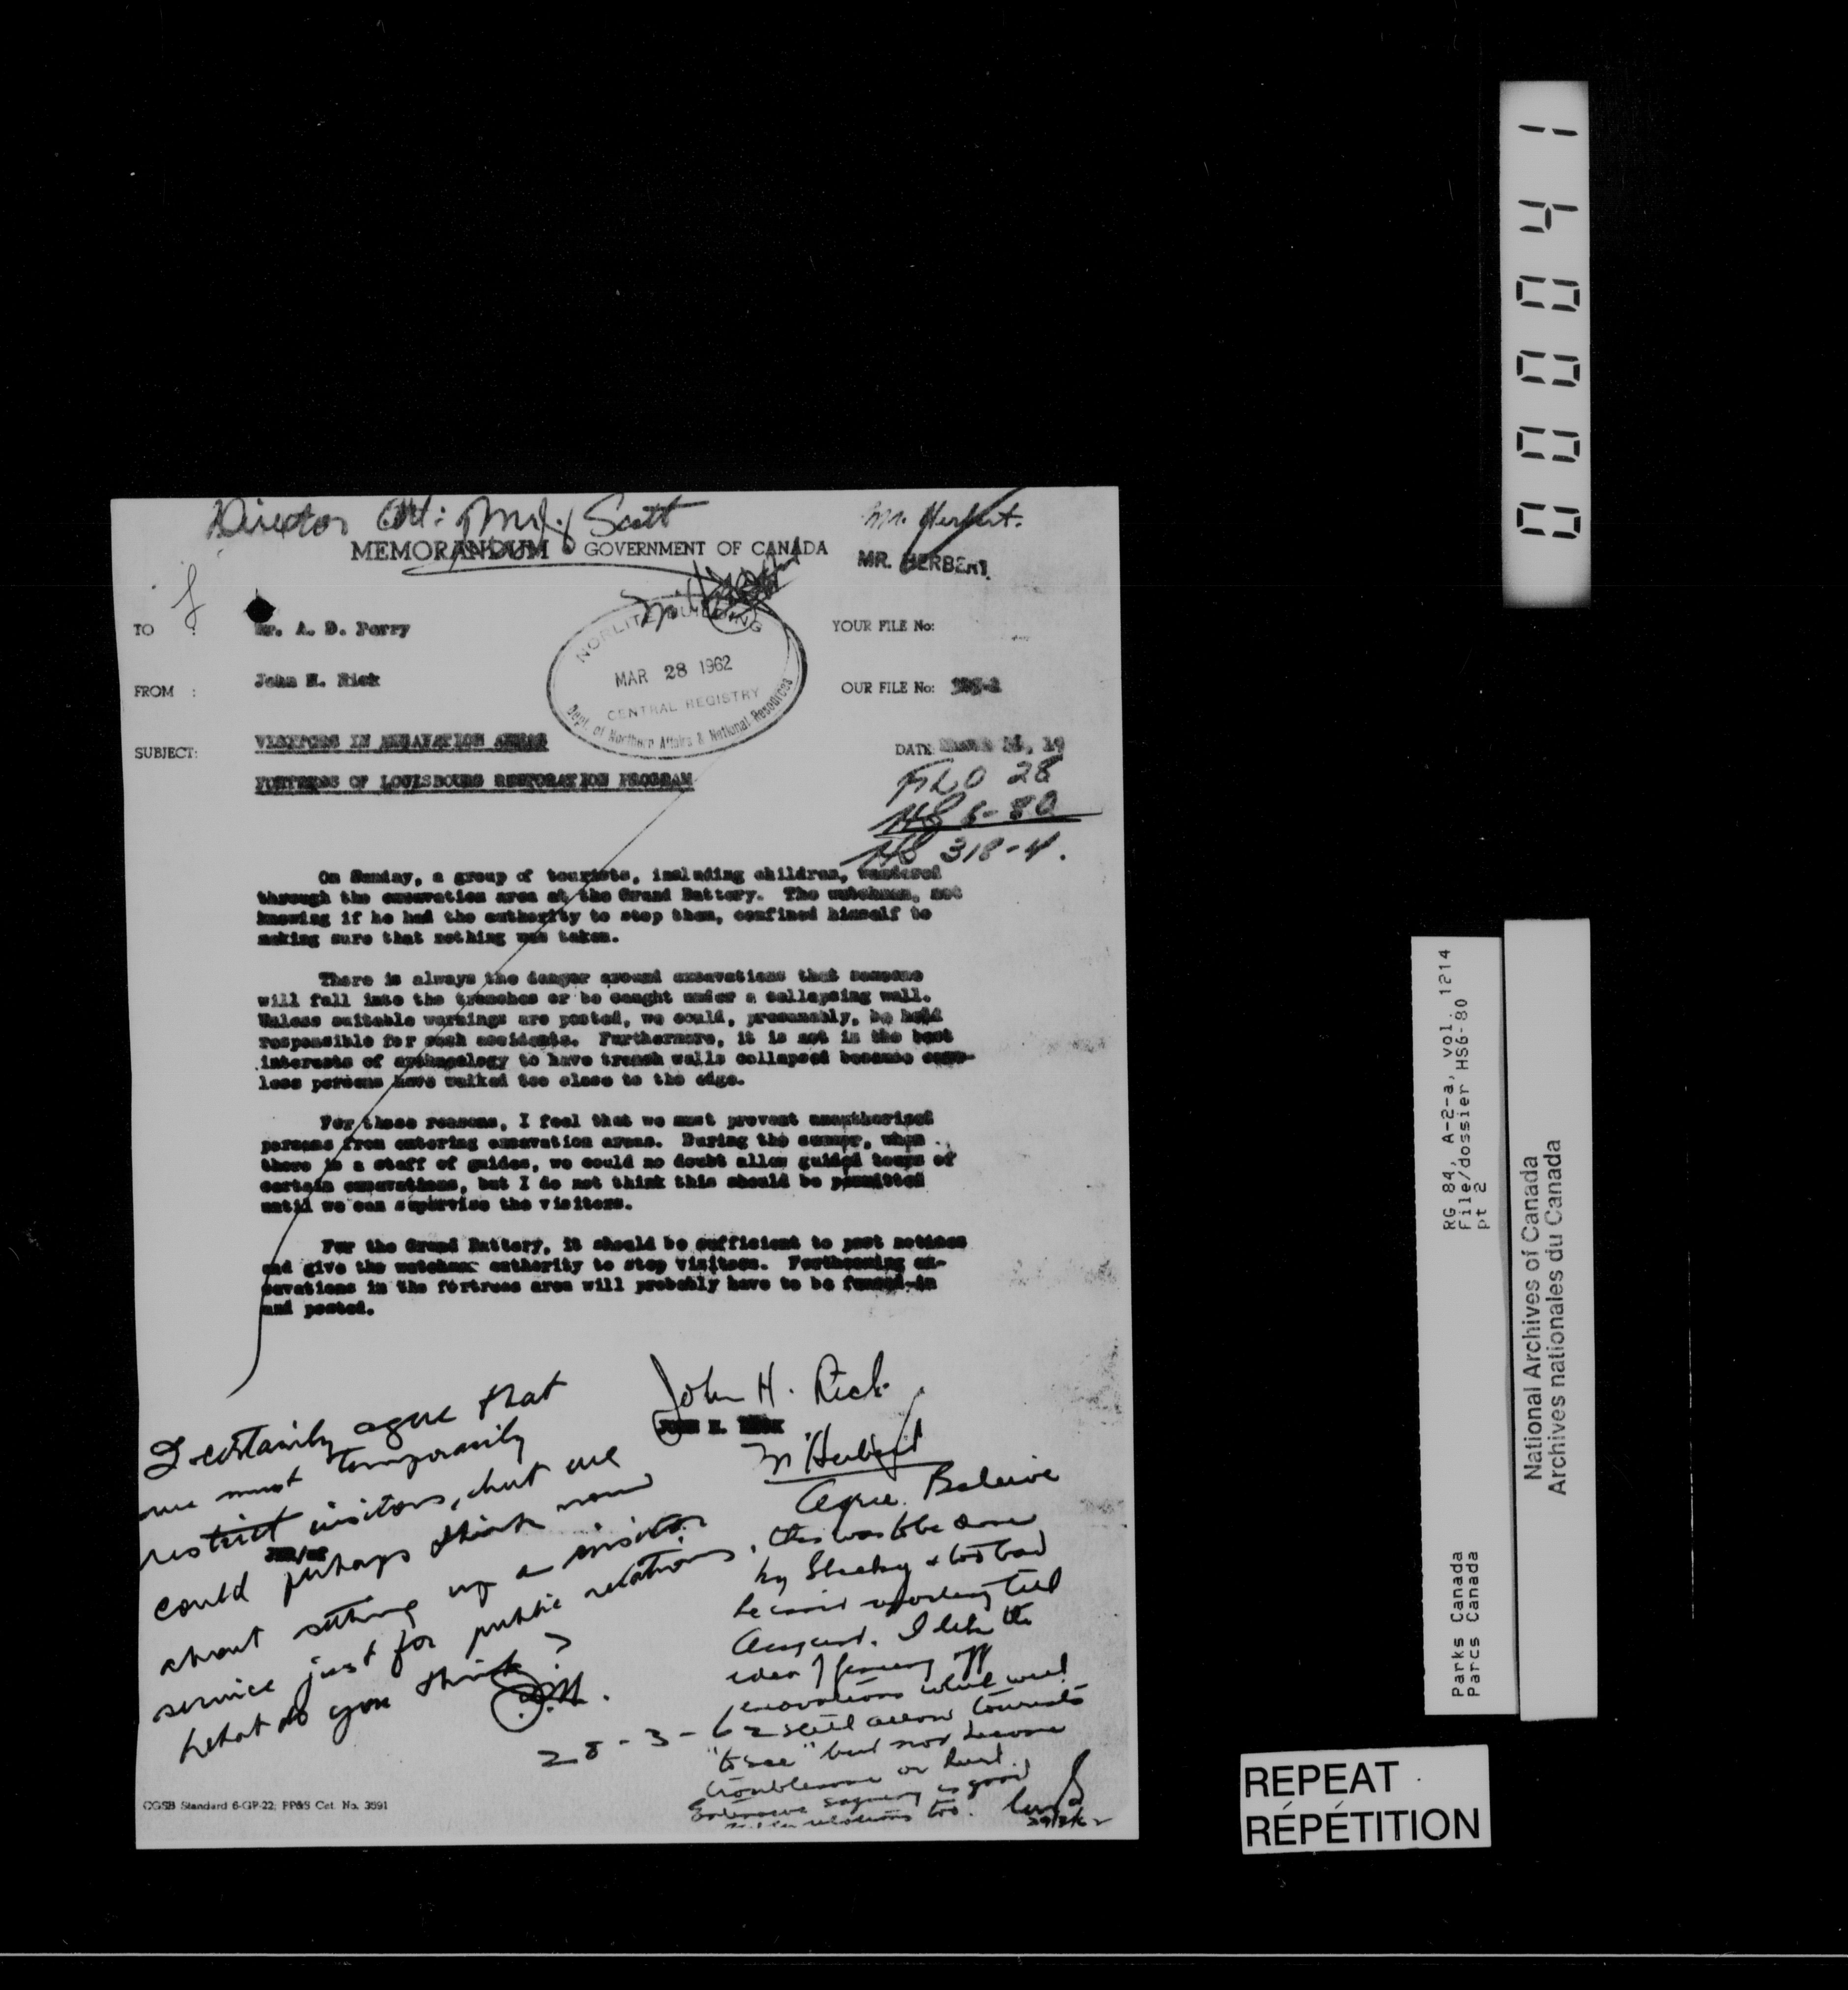 Director Att: Mr. Scott
Mr. Herbert.
MEMORANDUM GOVERNMENT OF CANADA
MR. HERBERT
TO : Mr. A. D. Perry
YOUR FILE No:
FROM : John H. Rick
OUR FILE No:
NORLITE BUILDING
MAR 28 1962
CENTRAL REGISTRY
Dept. of Northern Affairs & National Resources
SUBJECT: VISITORS IN EXCAVATION AREAS
DATE March , 19
FORTRESS OF LOUISBOURG RESTORATION PROGRAM
FLO 28
HS 6-80
HS 318-4.
On Sunday, a group of tourists, including children, wandered
through the excavation area at the Grand Battery. The watchman, not
knowing if he had the authority to stop them, confined himself to
making sure that nothing was taken.
There is always the danger around excavations that someone
will fall into the trenches or be caught under a collapsing wall.
Unless suitable warnings are posted, we could, presumably, be held
responsible for such accidents. Furthermore, it is not in the best
interests of archaeology to have trench walls collapsed because care-
less persons have walked too close to the edge.
For these reasons, I feel that we must prevent unauthorized
persons from entering excavation areas. During the summer, when
there is a staff of guides, we could no doubt allow guided tours of
certain excavations, but I do not think this should be permitted
until we can supervise the visitors.
For the Grand Battery, it should be sufficient to post notices
and give the watchman authority to stop visitors. Forthcoming ex-
cavations in the fortress area will probably have to be fenced-in
and posted.
John H. Rick
JOHN H. RICK
I certainly agree that
we must temporarily
restrict visitors, but we
could perhaps think now
about setting up a visitor
service just for public relations
What do you think?
28-3-62
Mr Herbert
Agree. Believe
this was to be done
by & too bad
he isn't reporting till
August. I like the
idea of fencing off
excavations which will
still allow tourists
"to see" but not become
troublesome or hurt.
Extensive signing is good
relations too.
29/3/62
CGSB Standard 6-GP-22; PP&S Cat. No. 3591
000041
RG 84, A-2-a, vol. 1214
File/dossier HS6-80
pt 2
Parks Canada
Parcs Canada
National Archives of Canada
Archives nationales du Canada
REPEAT
RÉPÉTITION